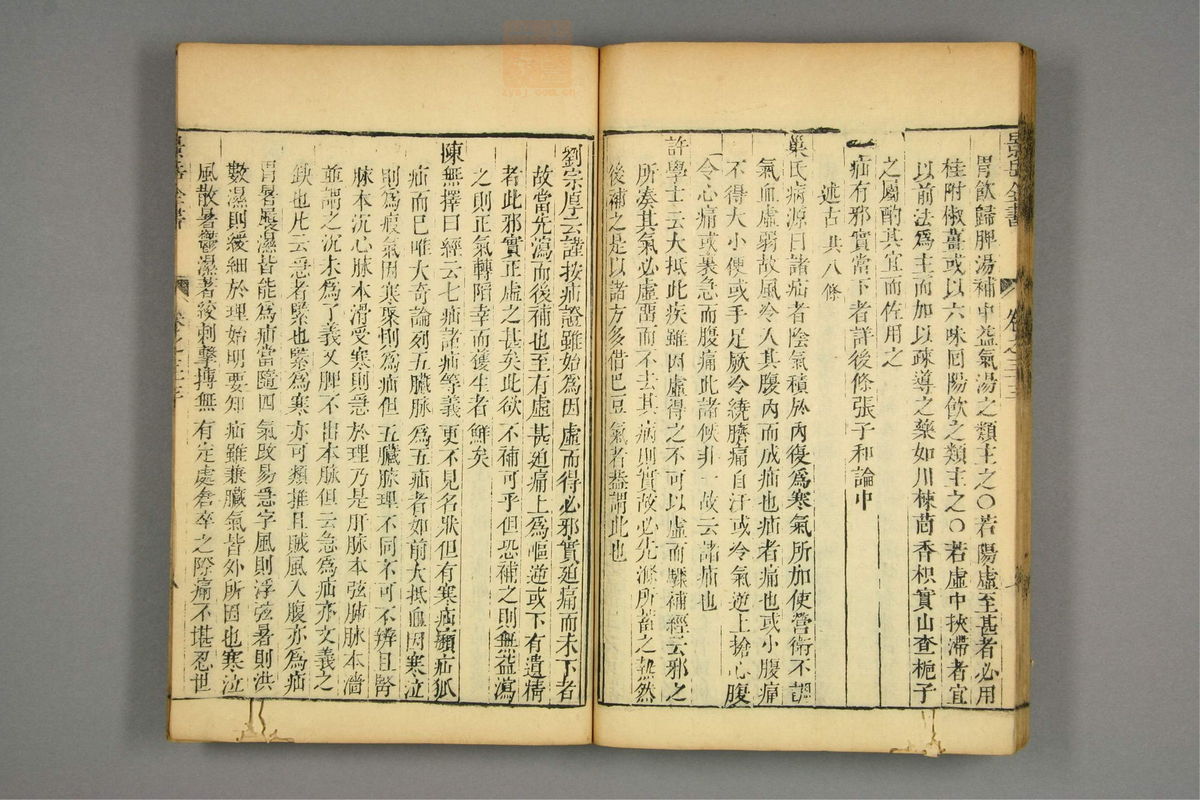 胃飲歸脾湯補中益氣湯之類主之〇若陽虛至甚者必用
桂附椒薑或以六味回陽飲之類主之〇若虛中挾滯者宜
以前法爲主而加以疎導之藥如川楝茴香枳實山查梔子
之屬酌其宜而佐用之
一疝有邪實當下者詳後條張子和論中
述古共八條
巢氏病源曰諸疝者陰氣積於內復爲寒氣所加使營衛不調
氣血虛弱故風冷入其腹內而成疝也疝者痛也或小腹痛
不得大小便或手足厥冷繞臍痛自汗或冷氣逆上搶心腹
令心痛或裏急而腹痛此諸候非一故云諸疝也
許學士云大抵此疾雖因虛得之不可以虛而驟補經云邪之
所湊其氣必虛畱而不去其病則實故必先滌所蓄之熱然
後補之是以諸方多借巴豆氣者葢謂此也
景岳全書
卷之三十三
劉宗厚云謹按疝證雖始爲因虛而得必邪實廹痛而未下者
故當先瀉而後補也至有虛甚廹痛上爲嘔逆或下有遺精
者此邪實正虛之甚矣此欲不補可乎但恐補之則無益瀉
之則正氣轉陷幸而獲生者鮮矣
陳無擇曰經云七疝諸疝等義更不見名狀但有寒疝癩疝狐
疝而已唯大奇論列五臟脉爲五疝者如前大抵血因寒泣
則爲瘕氣因寒聚則爲疝但五臟脉理不同不可不辨且腎
脉本沉心脉本滑受寒則急於理乃是肝脉本弦肺脉本濇
並謂之沉未爲了義又脾不出本脉但云急爲疝亦文義之
缺也凡云急者緊也緊爲寒亦可類推且賊風入腹亦爲疝
胃暑曩濕皆能爲疝當隨四氣改易急字風則浮弦暑則洪
數濕則緩細於理始明要知疝雖兼臟氣皆外所因也寒泣
風散暑鬱濕著絞刺擊搏無有定處倉卒之際痛不堪忍世
景岳全書
卷之三十三